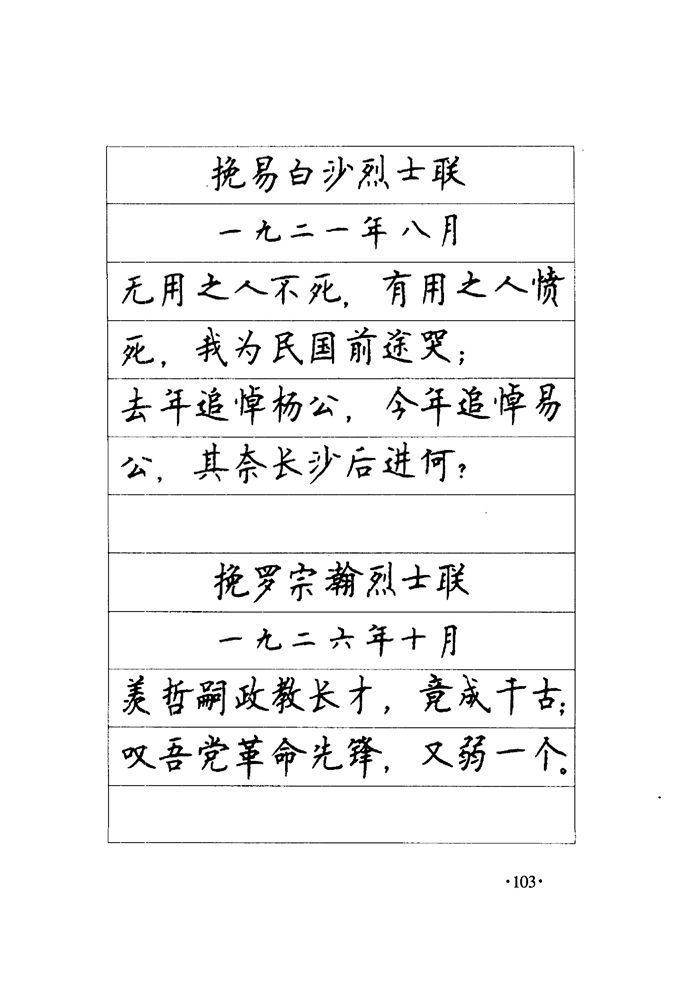 挽易白沙烈士联
一九二一年八月
无用之人不死，有用之人愤
死，我为民国前途哭；
去年追悼杨公，今年追悼易
公，其奈长沙后进何？
挽罗宗瀚烈士联
一九二六年十月
羡哲嗣政教长才，竟成千古；
叹吾党革命先锋，又弱一个。
·103·